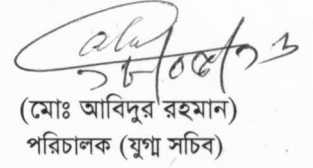 (মোঃ আবিদুর রহমান)
পরিচালক (যুগ্ম সচিব)